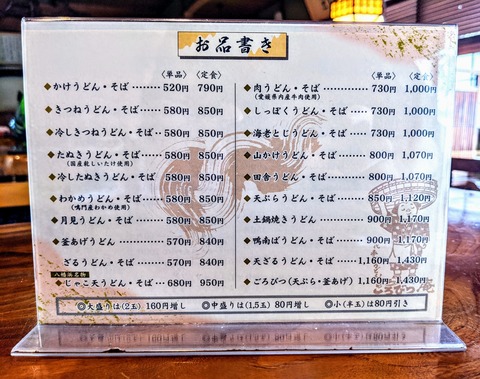 お品書き
〈単品〉〈定食〉
◆かけうどん・そば………520円 790円
◆きつねうどん・そば……580円 850円
◆冷しきつねうどん・そば…580円 850円
◆たぬきうどん・そば……580円 850円
(国産乾しいたけ使用)
◆冷したぬきうどん・そば…580円 850円
◆わかめうどん・そば……580円 850円
(鳴門産わかめ使用)
◆月見うどん・そば………580円 850円
◆釜あげうどん……………570円 840円
ざるうどん・そば………570円 840円
八幡浜名物
◆じゃこ天うどん・そば…680円 950円
〈単品〉〈定食〉
◆肉うどん・そば…………730円 1,000円
(愛媛県内産牛肉使用)
◆しっぽくうどん・そば…730円 1,000円
◆海老とじうどん・そば…730円 1,000円
◆山かけうどん・そば……800円 1,070円
◆田舎うどん・そば………800円 1,070円
◆天ぷらうどん・そば……850円 1,120円
◆土鍋焼きうどん…………900円 1,170円
◆鴨南ばうどん・そば……900円 1,170円
◆天ざるうどん・そば…1,160円 1,430円
◆ごろびつ(天ぷら・釜あげ) 1,160円 1,430円
◎大盛りは(2玉)160円増し ◎中盛りは(1.5玉)80円増し ◎小(半玉)は80円引き